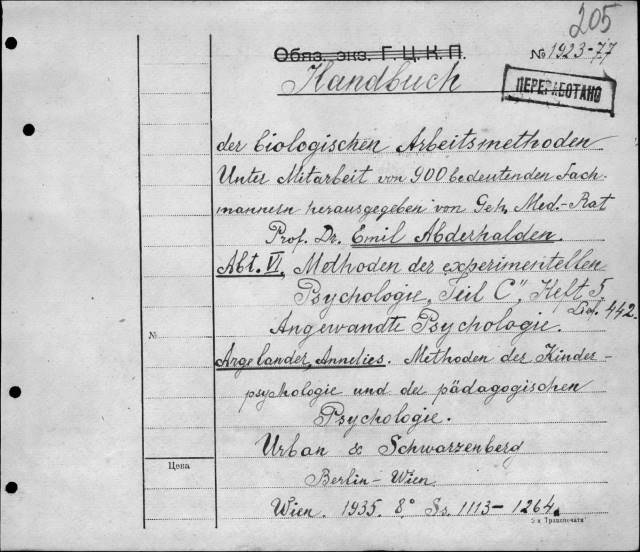 205
Обяз. экз. Г.Ц.К.П.
№ 1923-77
Handbuch
ПЕРЕРАБОТАНО
der biologischen Arbeitsmethoden
Unter Mitarbeit von 900 bedeutenden Fach-
männern herausgegeben von Geh. Med.-Rat
Prof. Dr. Emil Abderhalden.
Abt. VI, Methoden der experimentellen
Psychologie, Teil C", Heft 5
Lief. 442.
Angewandte Psychologie.
№
Argelander, Annelies. Methoden der Kinder-
psychologie und der pädagogischen
Psychologie.
Urban & Schwarzenberg
Цена
Berlin-Wien
Wien. 1935. 8° Ss. 1113-1264.
3-я Транспечати